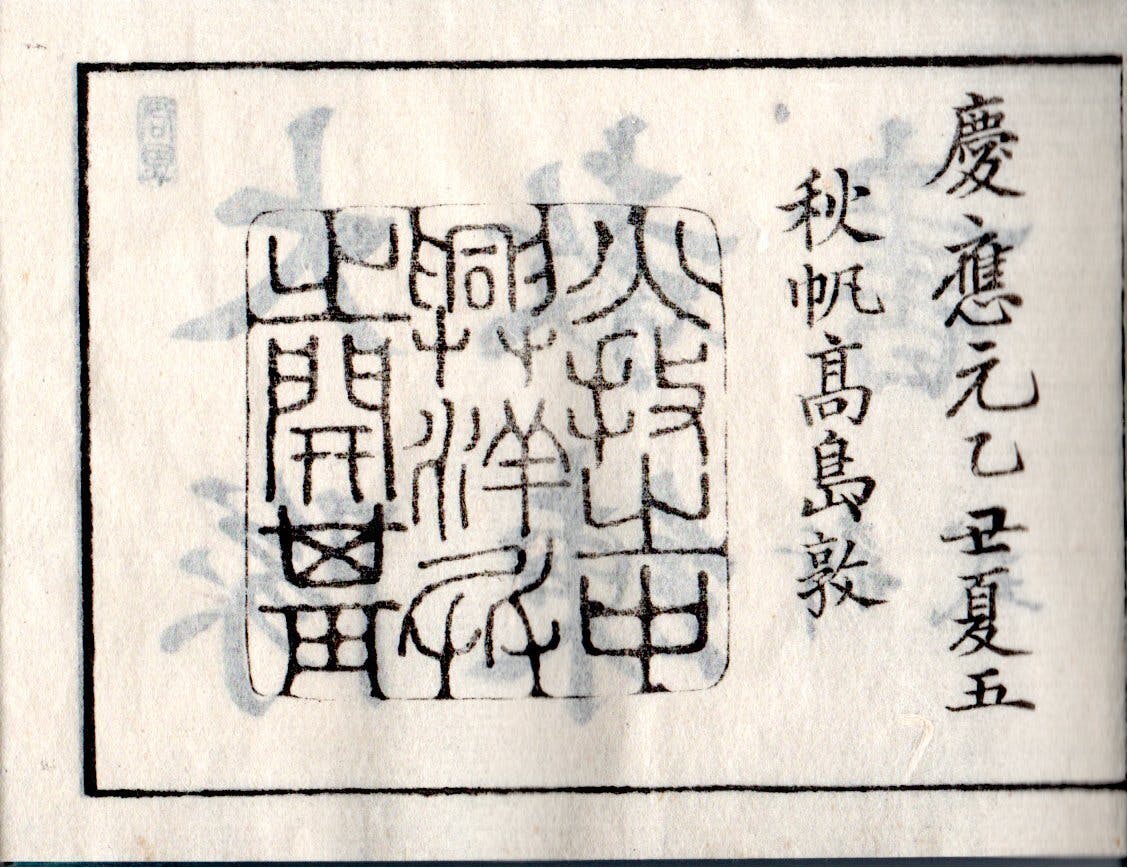 慶應元乙丑夏五
秋帆高島敦
火技之中
興洋兵
之開基